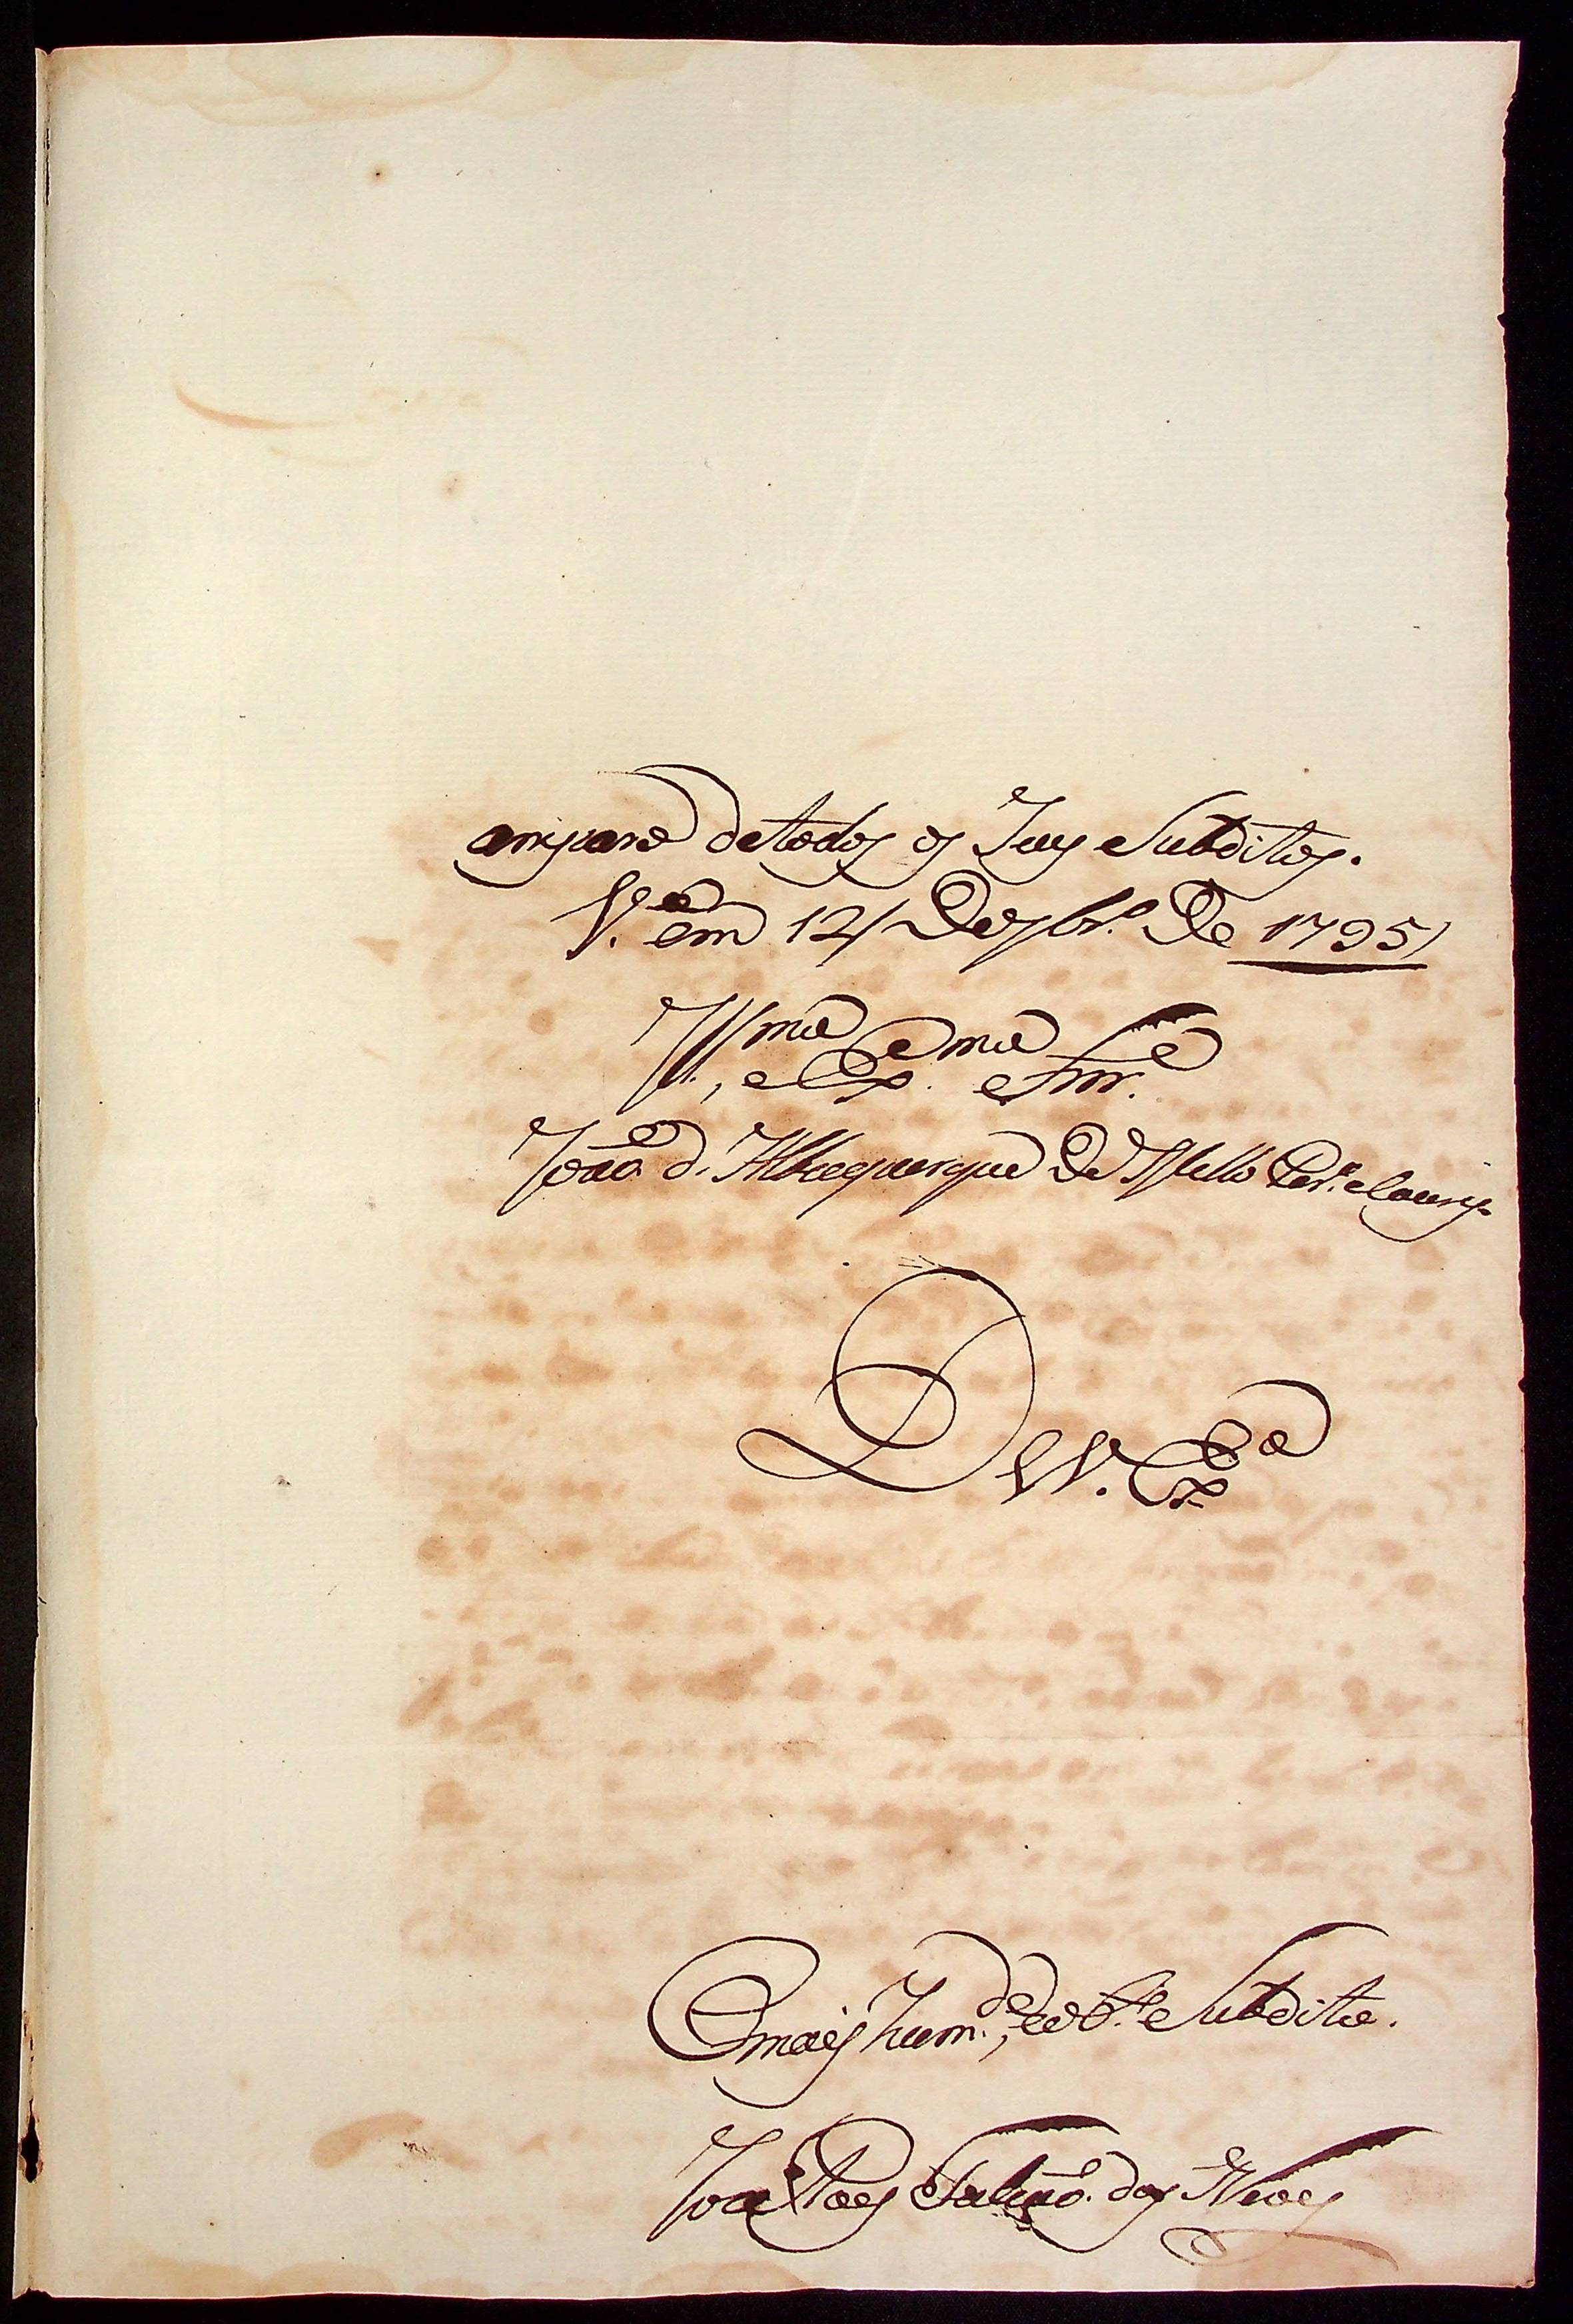 amparo de todos os Seus Subditos.
V.ª em 12 Dezbr.º De 1795
Ill.mo, e Ex.mo Snr.
João d'Albuquerque De Mello Per.ª e Caseres
De V. Ex.ª
O mais hum.de, e ob.te Subdito.
dos Neves